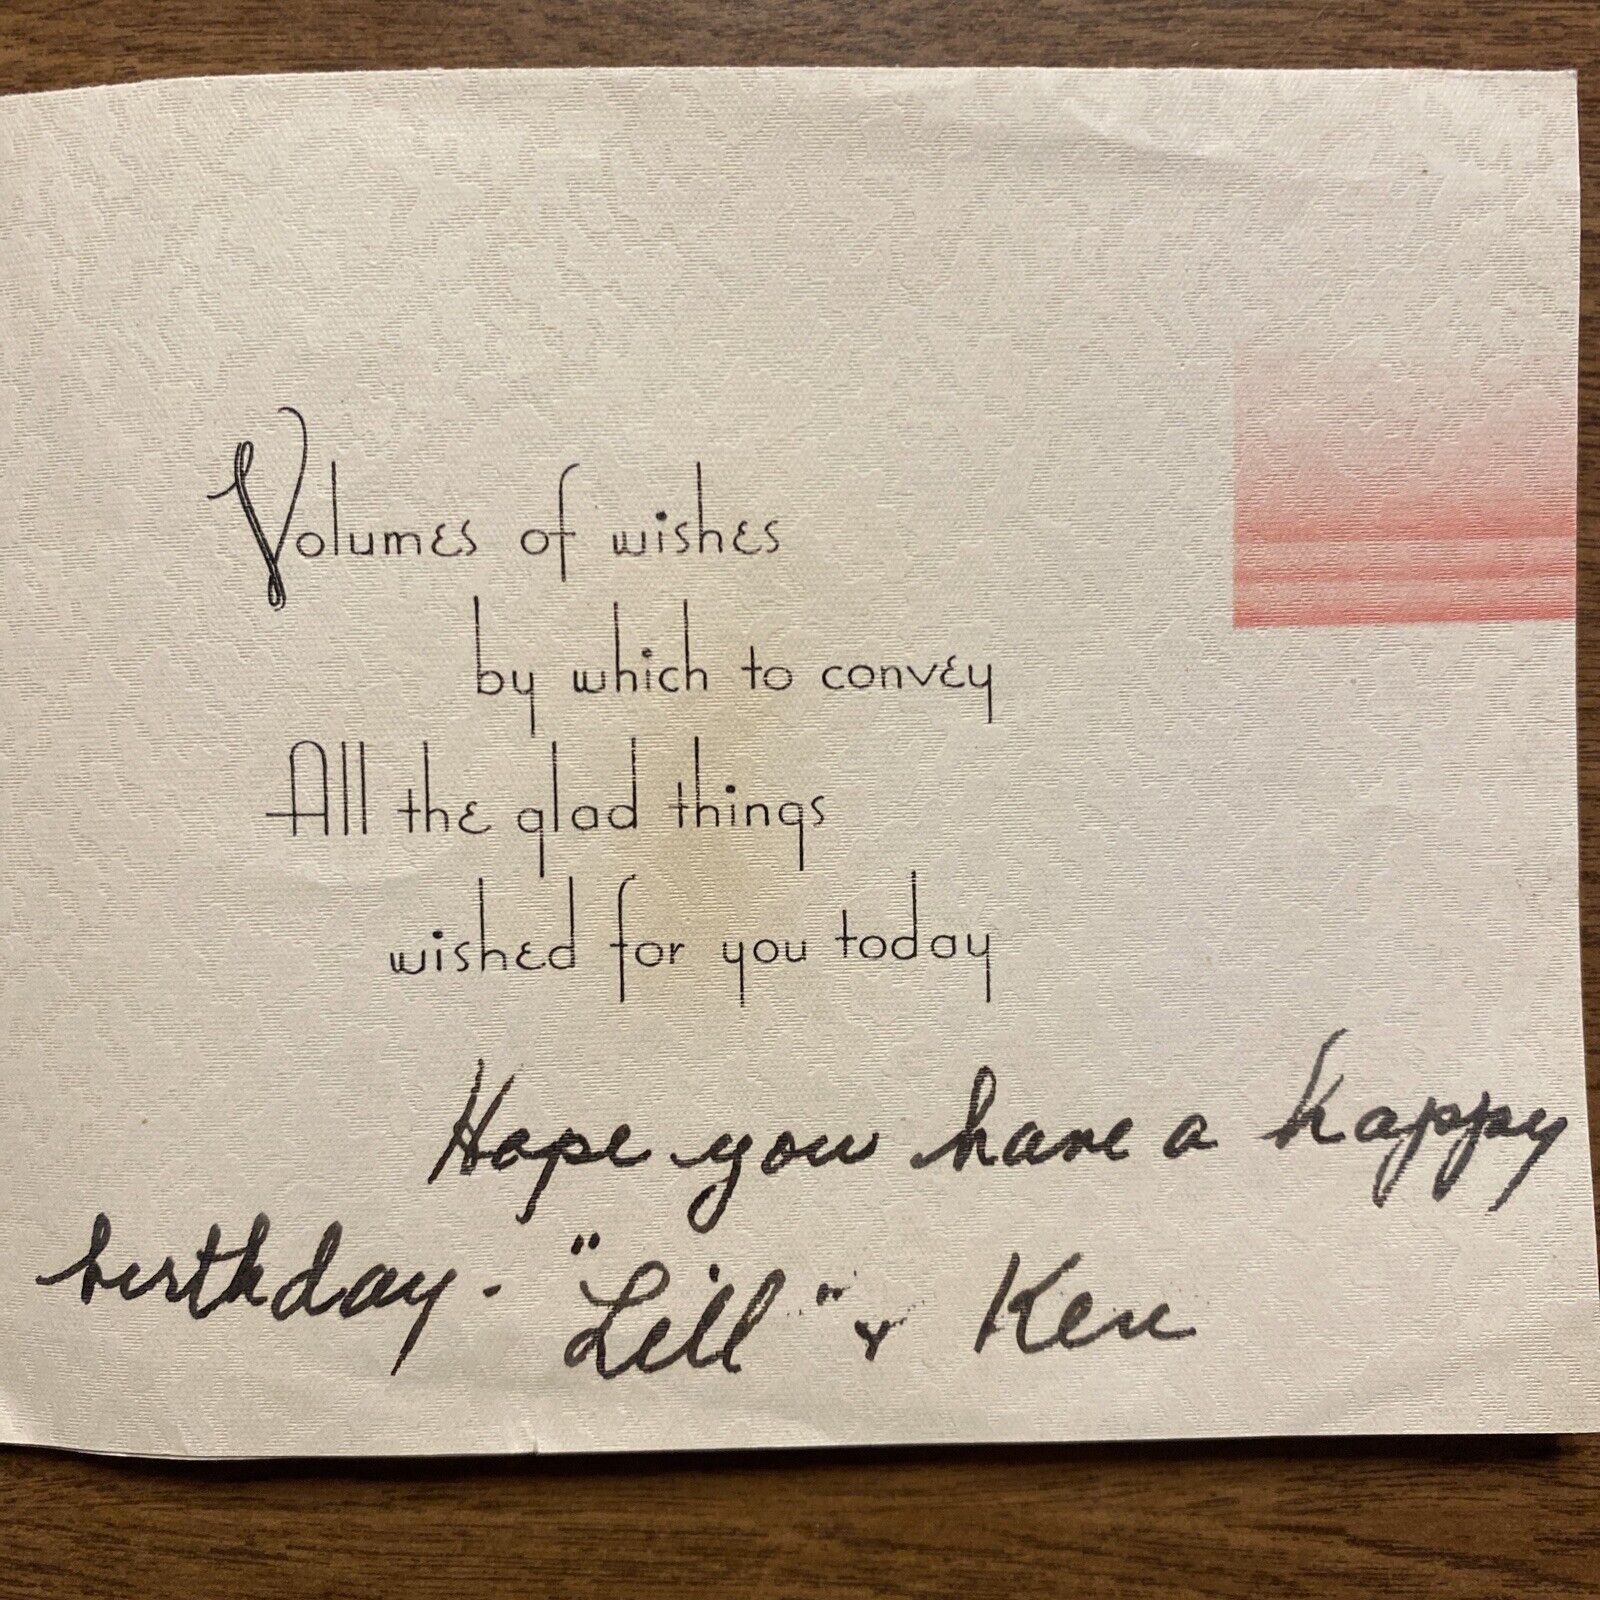 Volumes of wishes
by which to convey
All the glad things
wished for you today
Hope you have a happy
birthday - "Lill" & Ken